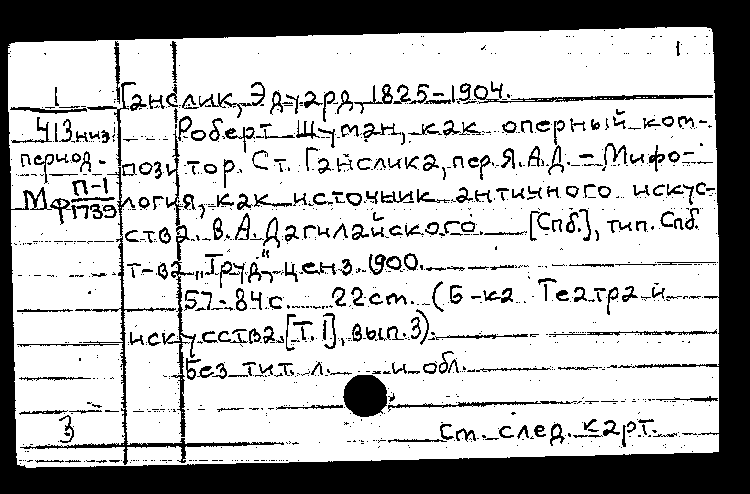 1
1 Ганслик, Эдуард, 1825-1904.
413 низ. Роберт Шуман, как оперный ком-
период. позитор. Ст. Ганслика, пер. Я.А.Д. - Мифо-
Мф П-1/1739 логия, как источник античного искус-
ства. В.А. Дагилайского. [Спб.], тип. Спб.
т-ва "Труд", ценз. 1900.
57-84 с. 22 см. (Б-ка Театра и
искусства. [Т. I], вып. 3).
Без тит. л. и обл.
3 См. след. карт.